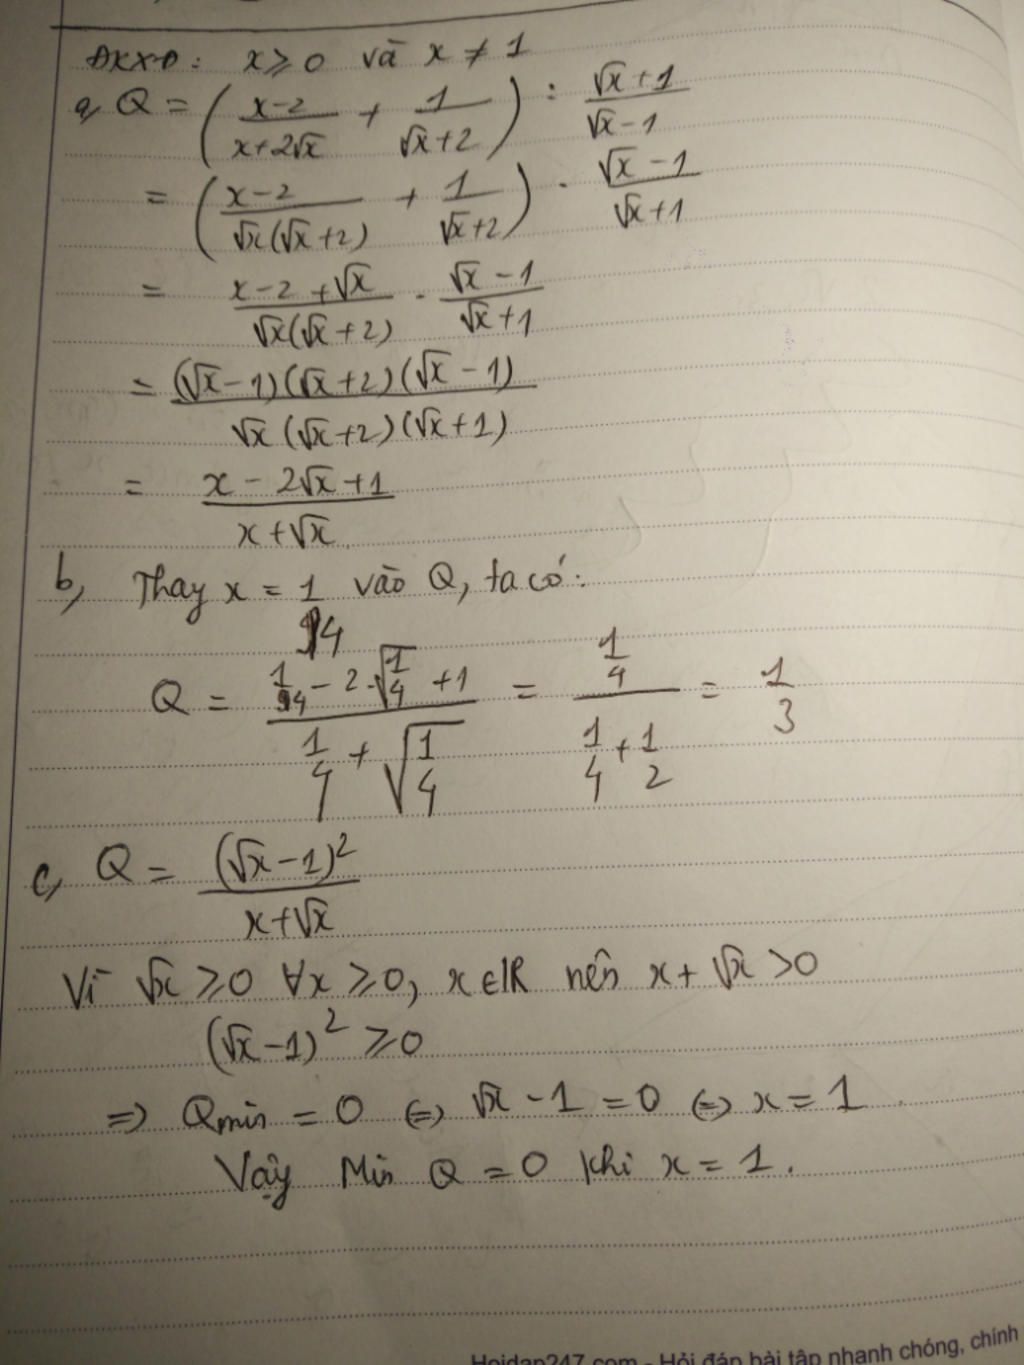 ĐKXĐ: x ≥ 0 và x ≠ 1
a, Q = ( (x-2)/(x+2√x) + 1/(√x+2) ) : (√x+1)/(√x-1)
= ( (x-2)/(√x(√x+2)) + 1/(√x+2) ) . (√x-1)/(√x+1)
= (x-2+√x)/(√x(√x+2)) . (√x-1)/(√x+1)
= ((√x-1)(√x+2)(√x-1))/(√x(√x+2)(√x+1))
= (x-2√x+1)/(x+√x)
b, Thay x = 1/4 vào Q, ta có:
Q = (1/4 - 2.√(1/4) + 1)/(1/4 + √(1/4)) = (1/4)/(1/4 + 1/2) = 1/3
c, Q = (√x-1)²/(x+√x)
Vì √x ≥ 0 ∀x ≥ 0, x ∈ IR nên x + √x > 0
(√x-1)² ≥ 0
=> Qmin = 0 <=> √x - 1 = 0 <=> x = 1
Vậy Min Q = 0 khi x = 1.
Hoidap247.com - Hỏi đáp bài tập nhanh chóng, chính